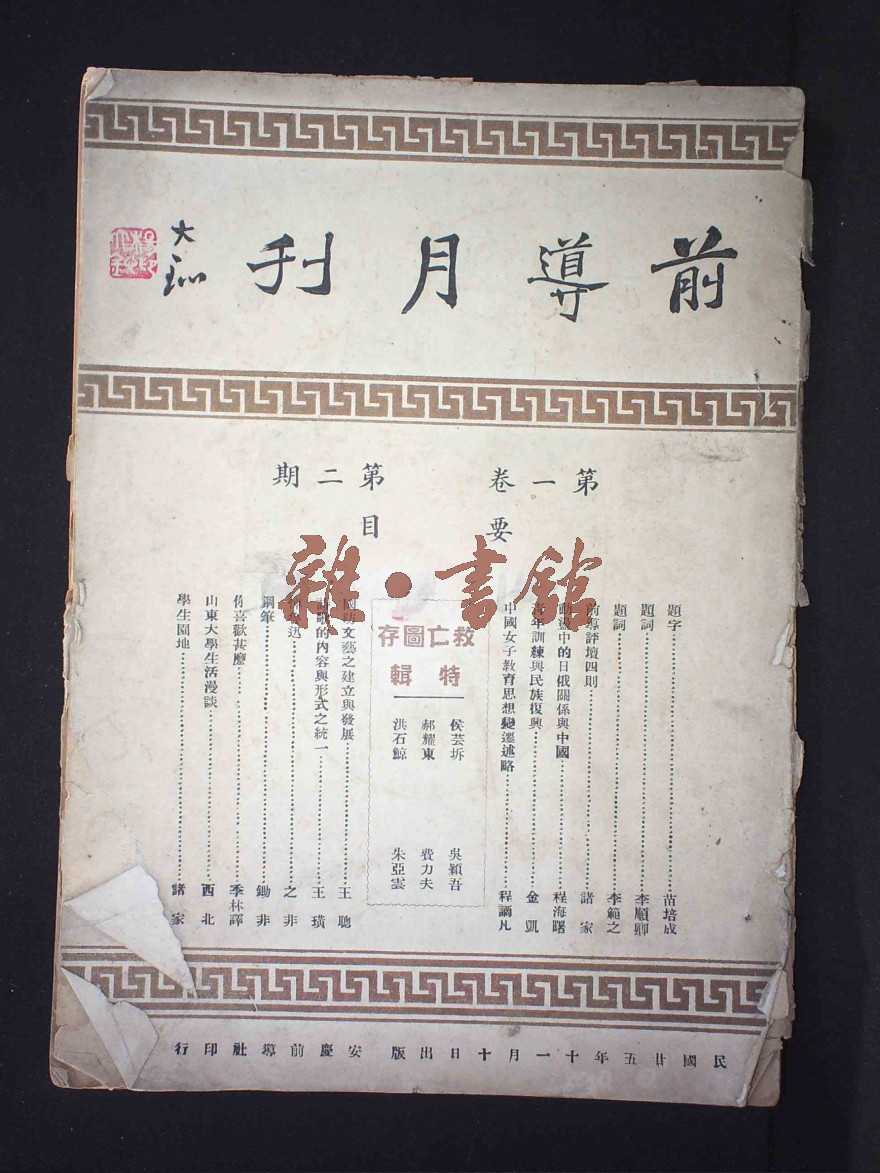 前導月刊
大
第一卷 第二期
要目
題字 苗培成
題詞 李順卿
題詞 李範之
前導評壇四則 諸家
動盪中的日俄關係與中國 程海曙
青年訓練與民族復興 金凱
中國女子教育思想變遷述略 程謫凡
救亡圖存
特輯
侯芸圻 吳穎吾
郝耀東 費力夫
洪石鯨 朱亞雲
國防文藝之建立與發展 王聰
詩歌的內容與形式之統一 王璜
迅 之非
鋼筆 鋤非
你喜歡甚麼 季林譯
山東大學生活漫談 西北
學生園地 諸家
雜·書館
民國廿五年十一月十日出版 安慶前導社印行